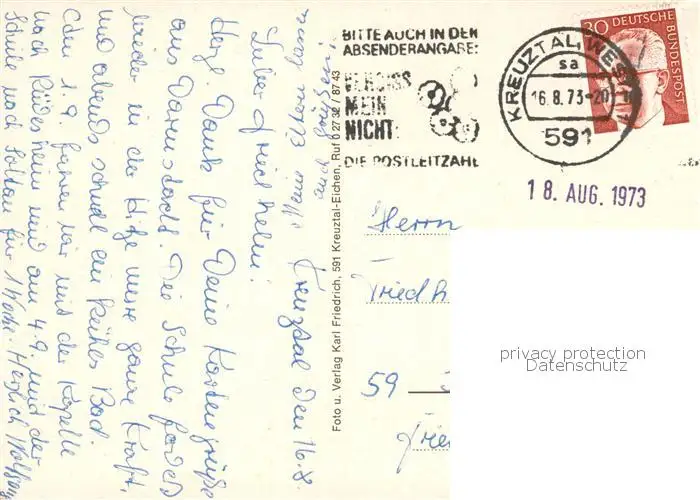 Kreuztal den 16.8.
Lieber Friedhelm!
Herzl. Dank für Deine Kartengrüße
aus Darmstadt. Die Schule fordert
wieder in der Hitze unsere ganze Kraft,
und abends schnell ein kühles Bad.
Am 1.9. fahren wir mit der Kapelle
nach Rüdesheim und am 4.9. mit der
Schule nach für 1 Woche. Herzlich Wolfgang
BITTE AUCH IN DER
ABSENDERANGABE:
VERGISS
MEIN
NICHT:
DIE POSTLEITZAHL
KREUZTAL, WESTF
sa
16.8.73-20
591
30 DEUTSCHE BUNDESPOST
18. AUG. 1973
Foto u. Verlag Karl Friedrich, 591 Kreuztal-Eichen, Ruf 0 27 32 / 87 43
Herrn
Friedh
59
privacy protection
Datenschutz